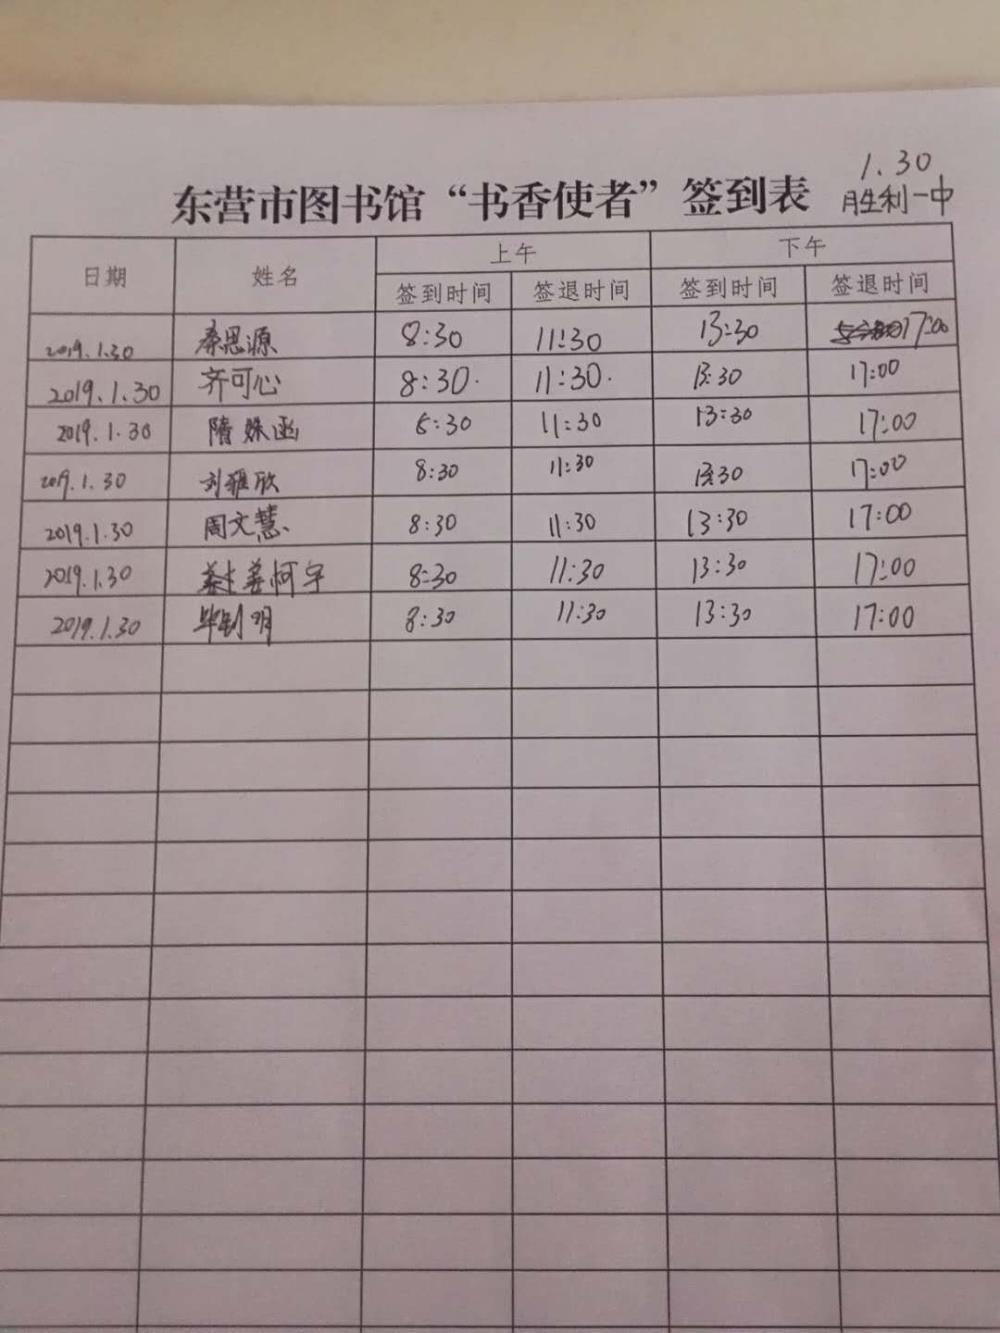 1.30
东营市图书馆“书香使者”签到表 胜利一中
日期 姓名 上午 下午
签到时间 签退时间 签到时间 签退时间
2019.1.30 秦思源 8:30 11:30 13:30 17:00
2019.1.30 齐可心 8:30. 11:30. 13:30 17:00
2019.1.30 隋姝函 8:30 11:30 13:30 17:00
2019.1.30 刘雅欣 8:30 11:30 13:30 17:00
2019.1.30 周文慧 8:30 11:30 13:30 17:00
2019.1.30 姜柯宇 8:30 11:30 13:30 17:00
2019.1.30 毕钊明 8:30 11:30 13:30 17:00